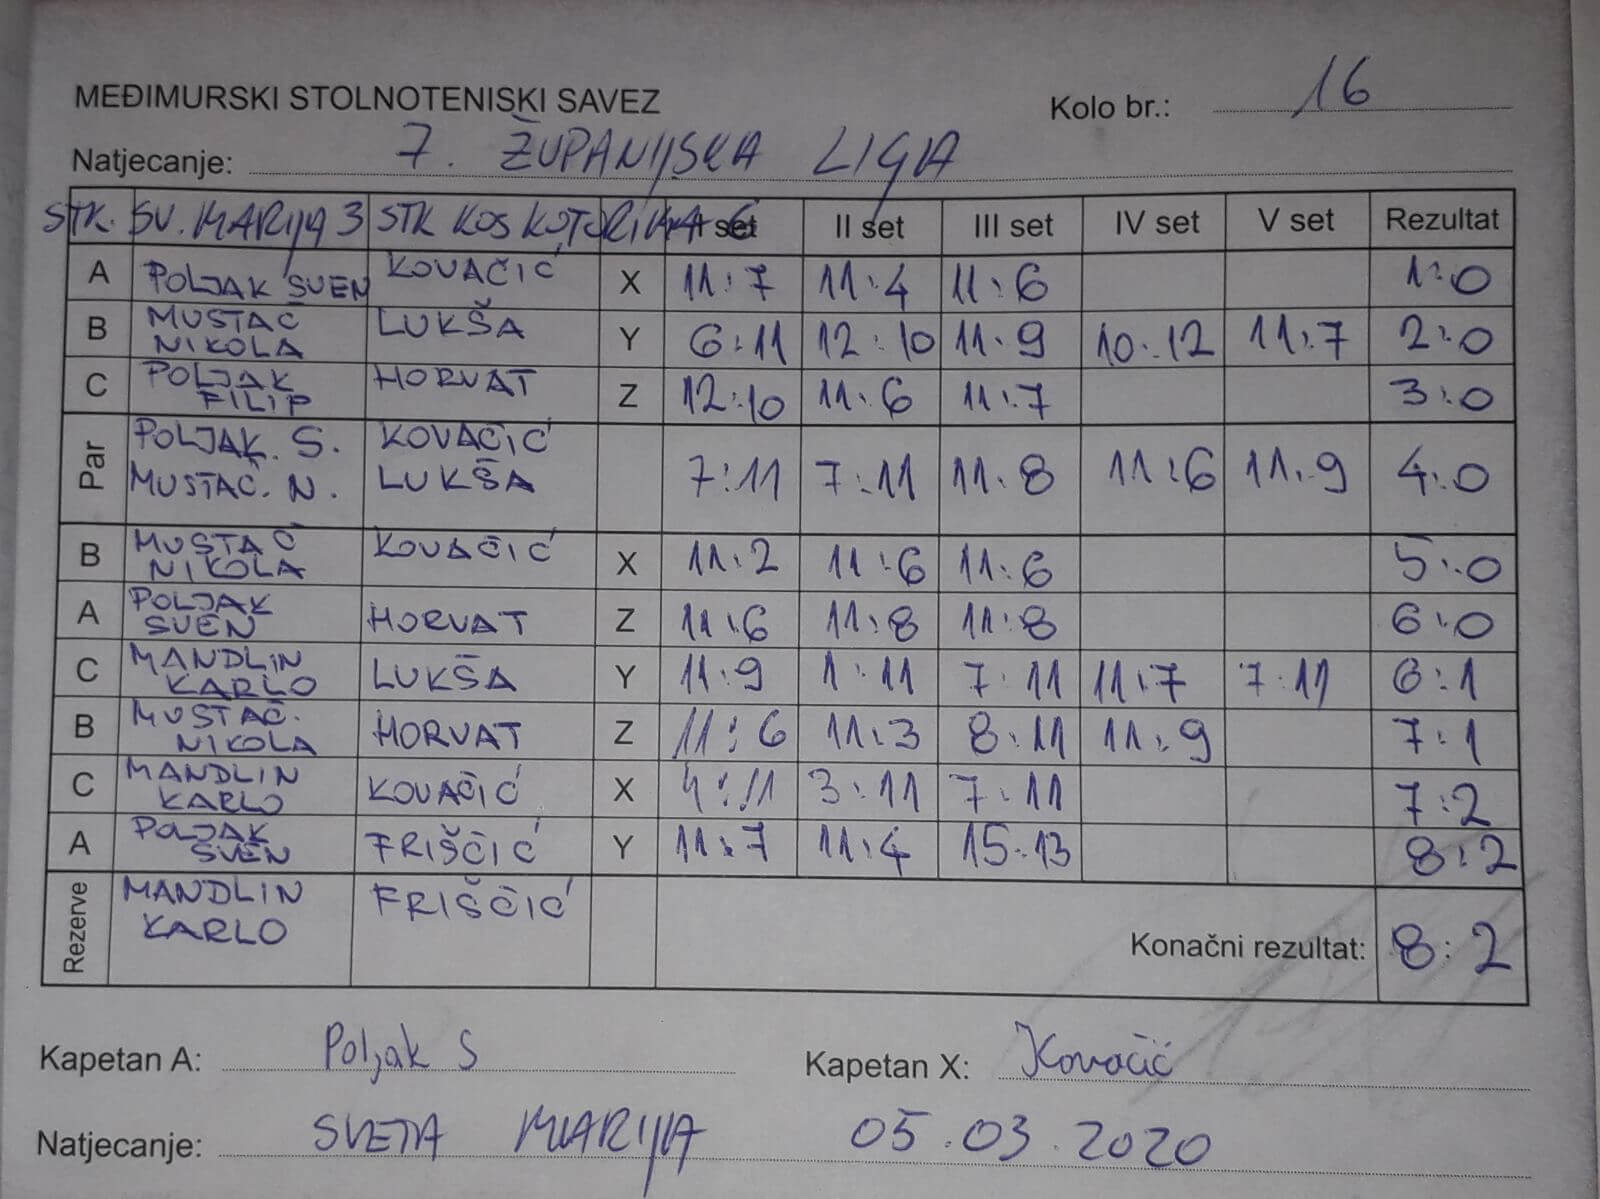 MEĐIMURSKI STOLNOTENISKI SAVEZ
Kolo br.: 16
Natjecanje: 7. ŽUPANIJSKA LIGA
STK. SV. MARIJA 3 STK KOS KOTORIBA 6 I set II set III set IV set V set Rezultat
A POLJAK SVEN KOVAČIĆ X 11:7 11:4 11:6 1:0
B MUSTAČ NIKOLA LUKŠA Y 6:11 12:10 11:9 10:12 11:7 2:0
C POLJAK FILIP HORVAT Z 12:10 11:6 11:7 3:0
Par POLJAK. S. KOVAČIĆ
MUSTAČ. N. LUKŠA 7:11 7:11 11:8 11:6 11:9 4:0
B MUSTAČ NIKOLA KOVAČIĆ X 11:2 11:6 11:6 5:0
A POLJAK SVEN HORVAT Z 11:6 11:8 11:8 6:0
C MANDLIN KARLO LUKŠA Y 11:9 1:11 7:11 11:7 7:11 6:1
B MUSTAČ. NIKOLA HORVAT Z 11:6 11:3 8:11 11:9 7:1
C MANDLIN KARLO KOVAČIĆ X 4:11 3:11 7:11 7:2
A POLJAK SVEN FRIŠČIĆ Y 11:7 11:4 15:13 8:2
Rezerve MANDLIN KARLO FRIŠČIĆ Konačni rezultat: 8:2
Kapetan A: Poljak S Kapetan X: Kovačić
Natjecanje: SVETA MARIJA 05.03.2020